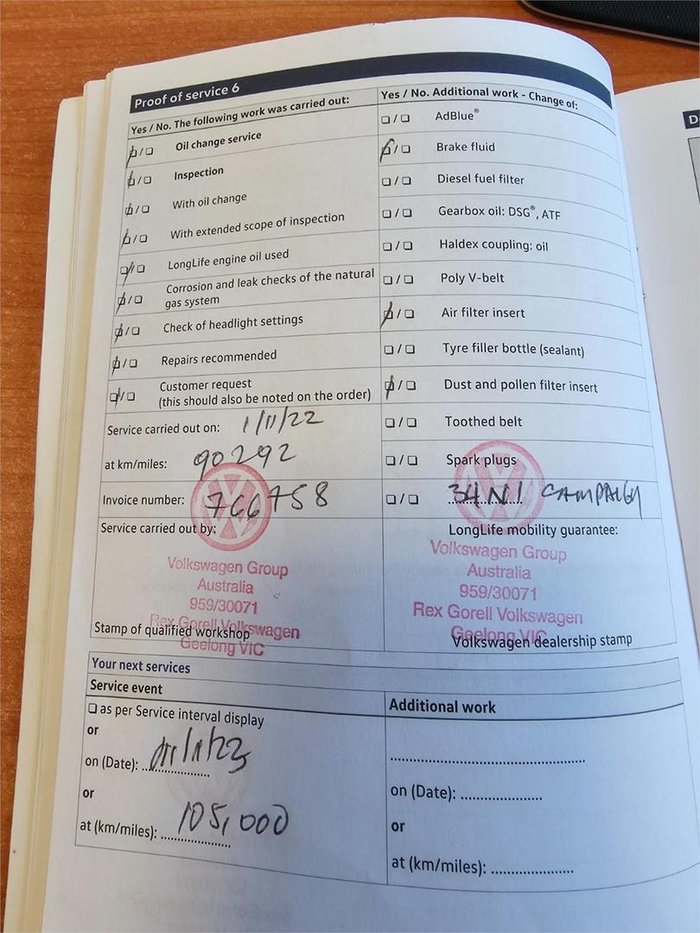 Proof of service 6
Yes / No. The following work was carried out:
Oil change service
Inspection
With oil change
With extended scope of inspection
LongLife engine oil used
Corrosion and leak checks of the natural
gas system
Check of headlight settings
Repairs recommended
Customer request
(this should also be noted on the order)
Service carried out on: 1/11/22
at km/miles: 90292
Invoice number: 766758
Service carried out by:
Volkswagen Group
Australia
959/30071
Rex Gorell Volkswagen
Geelong VIC
Stamp of qualified workshop
Yes / No. Additional work - Change of:
AdBlue®
Brake fluid
Diesel fuel filter
Gearbox oil: DSG®, ATF
Haldex coupling: oil
Poly V-belt
Air filter insert
Tyre filler bottle (sealant)
Dust and pollen filter insert
Toothed belt
Spark plugs
34N1 CAMPAIGN
LongLife mobility guarantee:
Volkswagen Group
Australia
959/30071
Rex Gorell Volkswagen
Geelong VIC
Volkswagen dealership stamp
Your next services
Service event
as per Service interval display
or
on (Date):
or
at (km/miles): 105,000
Additional work
on (Date):
or
at (km/miles):